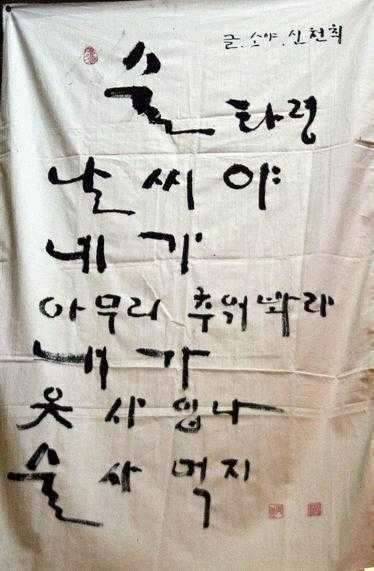 글. 소야. 신천희
술 타령
날씨야
네가
아무리 추워봐라
내가
옷 사 입나
술 사 먹지